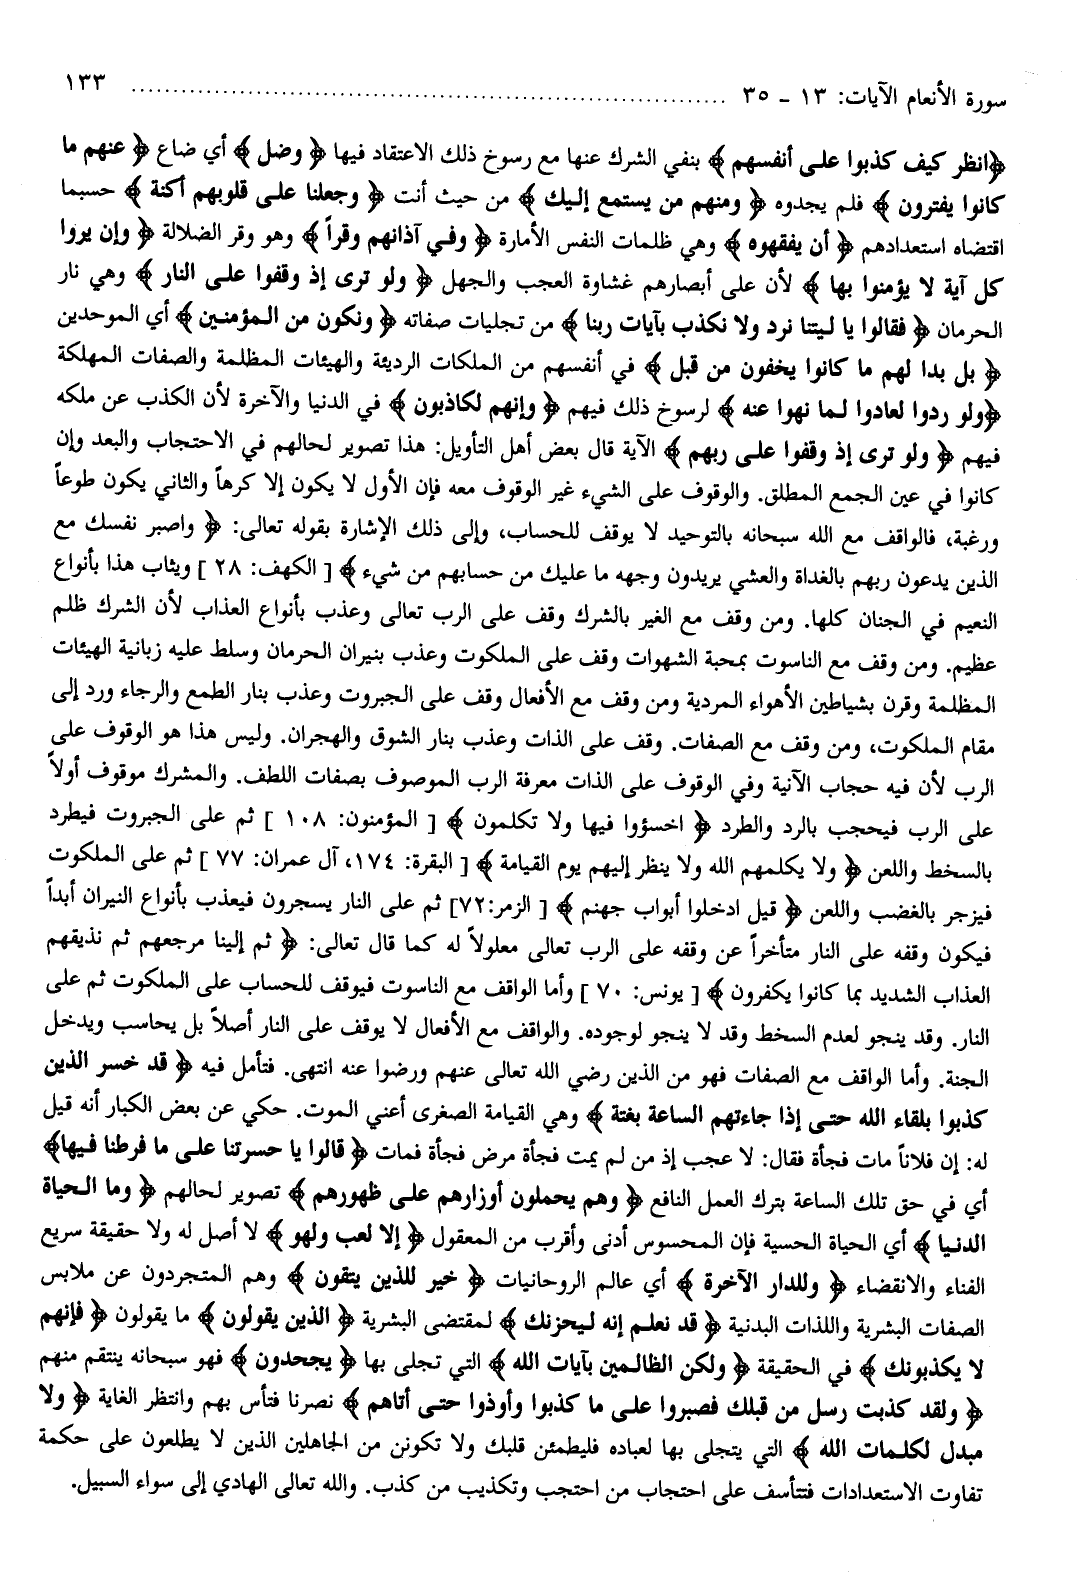 سورة الأنعام الآيات: ١٣ ـ ٣٥ ........................................................................ ١٣٣
﴿انظر كيف كذبوا على أنفسهم﴾ بنفي الشرك عنها مع رسوخ ذلك الاعتقاد فيها ﴿ وضل ﴾ أي ضاع ﴿ عنهم ما
كانوا يفترون ﴾ فلم يجدوه ﴿ ومنهم من يستمع إليك ﴾ من حيث أنت ﴿ وجعلنا على قلوبهم أكنة ﴾ حسبما
اقتضاه استعدادهم ﴿ أن يفقهوه ﴾ وهي ظلمات النفس الأمارة ﴿ وفي آذانهم وقراً ﴾ وهو وقر الضلالة ﴿ وإن يروا
كل آية لا يؤمنوا بها ﴾ لأن على أبصارهم غشاوة العجب والجهل ﴿ ولو ترى إذ وقفوا على النار ﴾ وهي نار
الحرمان ﴿ فقالوا يا ليتنا نرد ولا نكذب بآيات ربنا ﴾ من تجليات صفاته ﴿ ونكون من المؤمنين ﴾ أي الموحدين
﴿ بل بدا لهم ما كانوا يخفون من قبل ﴾ في أنفسهم من الملكات الرديئة والهيئات المظلمة والصفات المهلكة
﴿ولو ردوا لعادوا لما نهوا عنه ﴾ لرسوخ ذلك فيهم ﴿ وإنهم لكاذبون ﴾ في الدنيا والآخرة لأن الكذب عن ملكه
فيهم ﴿ ولو ترى إذ وقفوا على ربهم ﴾ الآية قال بعض أهل التأويل: هذا تصوير لحالهم في الاحتجاب والبعد وإن
كانوا في عين الجمع المطلق. والوقوف على الشيء غير الوقوف معه فإن الأول لا يكون إلا كرهاً والثاني يكون طوعاً
ورغبة، فالواقف مع الله سبحانه بالتوحيد لا يوقف للحساب، وإلى ذلك الإشارة بقوله تعالى: ﴿ واصبر نفسك مع
الذين يدعون ربهم بالغداة والعشي يريدون وجهه ما عليك من حسابهم من شيء ﴾ [ الكهف: ٢٨ ] ويثاب هذا بأنواع
النعيم في الجنان كلها. ومن وقف مع الغير بالشرك وقف على الرب تعالى وعذب بأنواع العذاب لأن الشرك ظلم
عظيم. ومن وقف مع الناسوت بمحبة الشهوات وقف على الملكوت وعذب بنيران الحرمان وسلط عليه زبانية الهيئات
المظلمة وقرن بشياطين الأهواء المردية ومن وقف مع الأفعال وقف على الجبروت وعذب بنار الطمع والرجاء ورد إلى
مقام الملكوت، ومن وقف مع الصفات. وقف على الذات وعذب بنار الشوق والهجران. وليس هذا هو الوقوف على
الرب لأن فيه حجاب الآنية وفي الوقوف على الذات معرفة الرب الموصوف بصفات اللطف. والمشرك موقوف أولاً
على الرب فيحجب بالرد والطرد ﴿ اخسؤوا فيها ولا تكلمون ﴾ [ المؤمنون: ١٠٨ ] ثم على الجبروت فيطرد
بالسخط واللعن ﴿ ولا يكلمهم الله ولا ينظر إليهم يوم القيامة ﴾ [ البقرة: ١٧٤، آل عمران: ٧٧ ] ثم على الملكوت
فيزجر بالغضب واللعن ﴿ قيل ادخلوا أبواب جهنم ﴾ [ الزمر:٧٢] ثم على النار يسجرون فيعذب بأنواع النيران أبداً
فيكون وقفه على النار متأخراً عن وقفه على الرب تعالى معلولاً له كما قال تعالى: ﴿ ثم إلينا مرجعهم ثم نذيقهم
العذاب الشديد بما كانوا يكفرون ﴾ [ يونس: ٧٠ ] وأما الواقف مع الناسوت فيوقف للحساب على الملكوت ثم على
النار. وقد ينجو لعدم السخط وقد لا ينجو لوجوده. والواقف مع الأفعال لا يوقف على النار أصلاً بل يحاسب ويدخل
الجنة. وأما الواقف مع الصفات فهو من الذين رضي الله تعالى عنهم ورضوا عنه انتهى. فتأمل فيه ﴿ قد خسر الذين
كذبوا بلقاء الله حتى إذا جاءتهم الساعة بغتة ﴾ وهي القيامة الصغرى أعني الموت. حكي عن بعض الكبار أنه قيل
له: إن فلاناً مات فجأة فقال: لا عجب إذ من لم يمت فجأة مرض فجأة فمات ﴿ قالوا يا حسرتنا على ما فرطنا فيها﴾
أي في حق تلك الساعة بترك العمل النافع ﴿ وهم يحملون أوزارهم على ظهورهم ﴾ تصوير لحالهم ﴿ وما الحياة
الدنيا ﴾ أي الحياة الحسية فإن المحسوس أدنى وأقرب من المعقول ﴿ إلا لعب ولهو ﴾ لا أصل له ولا حقيقة سريع
الفناء والانقضاء ﴿ وللدار الآخرة ﴾ أي عالم الروحانيات ﴿ خير للذين يتقون ﴾ وهم المتجردون عن ملابس
الصفات البشرية واللذات البدنية ﴿ قد نعلم إنه ليحزنك ﴾ لمقتضى البشرية ﴿ الذين يقولون ﴾ ما يقولون ﴿ فإنهم
لا يكذبونك ﴾ في الحقيقة ﴿ ولكن الظالمين بآيات الله ﴾ التي تجلى بها ﴿ يجحدون ﴾ فهو سبحانه ينتقم منهم
﴿ ولقد كذبت رسل من قبلك فصبروا على ما كذبوا وأوذوا حتى أتاهم ﴾ نصرنا فتأس بهم وانتظر الغاية ﴿ ولا
مبدل لكلمات الله ﴾ التي يتجلى بها لعباده فليطمئن قلبك ولا تكونن من الجاهلين الذين لا يطلعون على حكمة
تفاوت الاستعدادات فتتأسف على احتجاب من احتجب وتكذيب من كذب. والله تعالى الهادي إلى سواء السبيل.